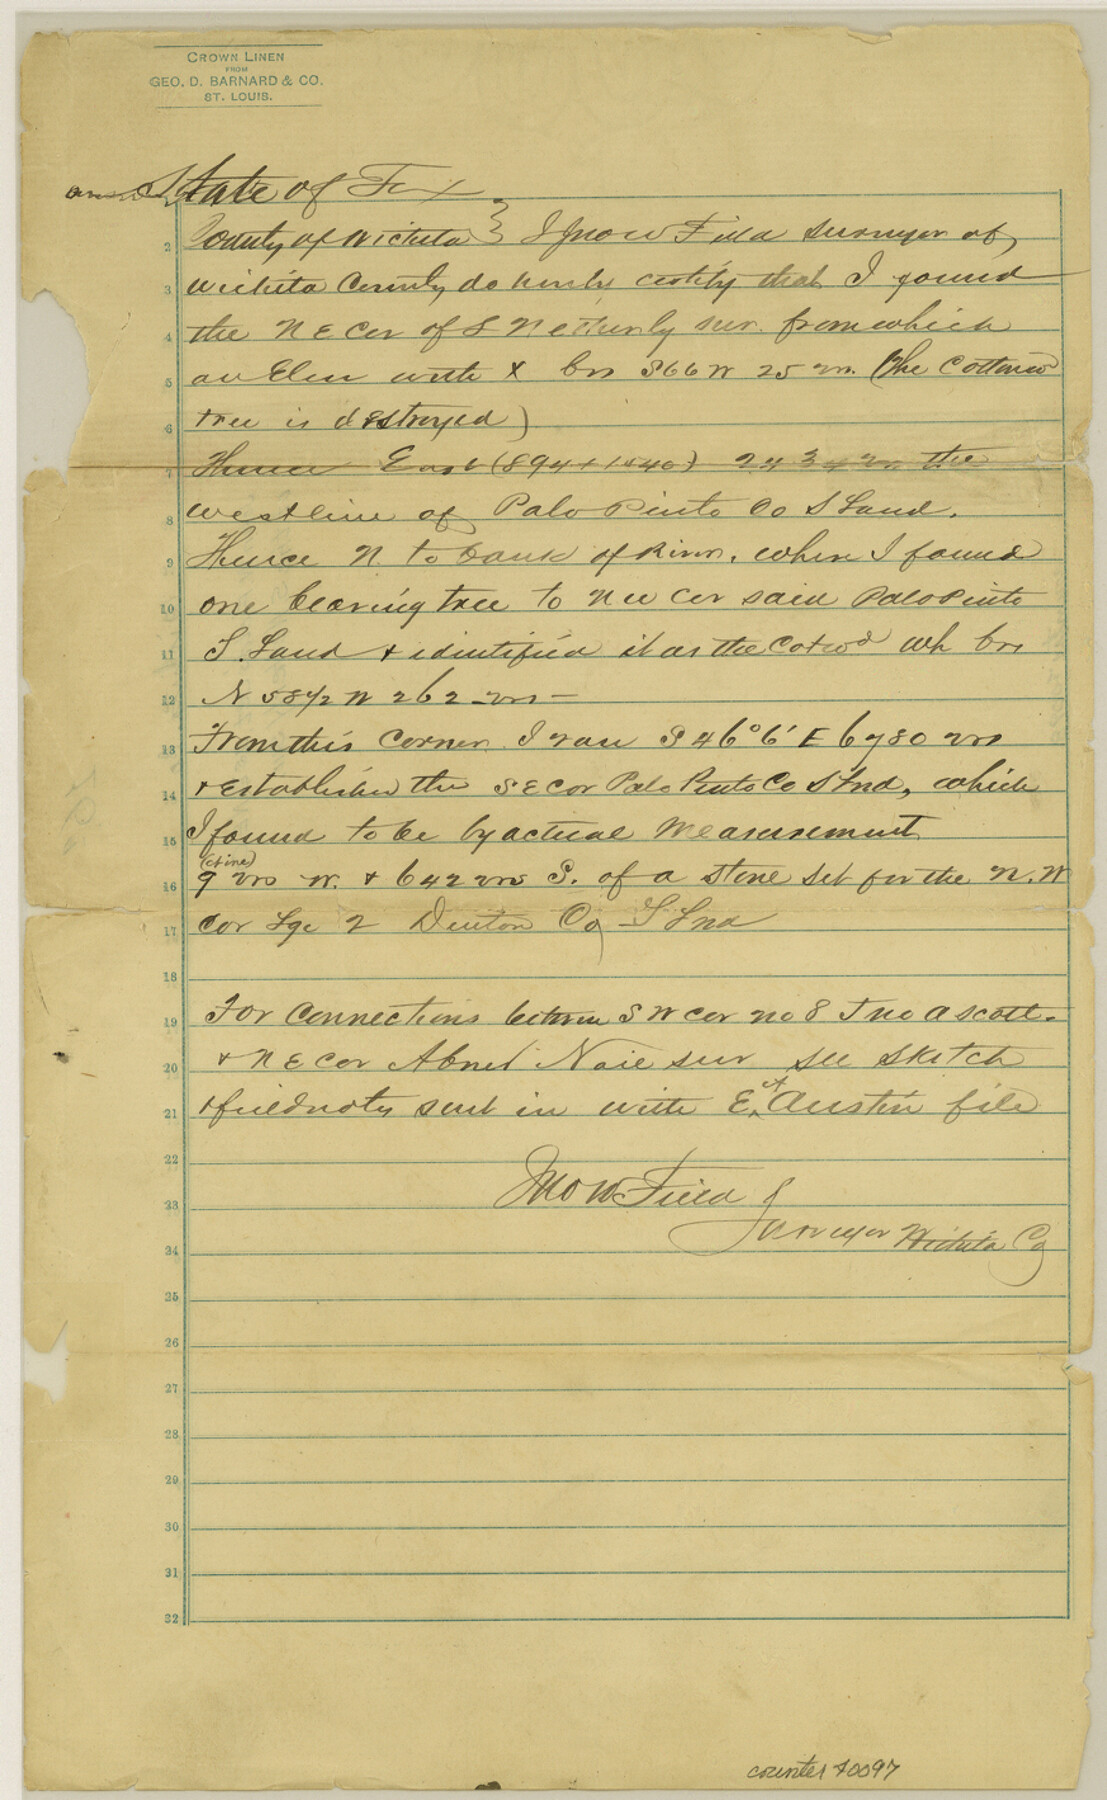 CROWN LINEN
FROM
GEO. D. BARNARD & CO.
ST. LOUIS.
State of Tex
County of Wichita } I Jno W Field Surveyor of
2
Wichita County do hereby certify that I found
3
the N E Cor of S Netherly sur. from which
4
an Elm with X brs S66W 25 vrs. (The Cottonwd
5
tree is destroyed)
6
Thence East (894+1540) 2434 vrs the
7
west line of Palo Pinto Co S Land.
8
Thence N. to bank of River, where I found
9
one bearing tree to N W Cor said Palo Pinto
10
S. Land + identified it as the Cotwd wh brs
11
N 58½ W 262 vrs —
12
From this corner I ran S 46° 6' E 6780 vrs
13
+ established the S E cor Palo Pinto Co S Lnd, which
14
I found to be by actual Measurement
15
(nine)
9 vrs W. + 642 vrs S. of a stone set for the N.W
16
cor Lge 2 Denton Co S Lnd
17
18
For Connections between S W cor no 8 Jno A Scott
19
+ N E cor Abner sur see sketch
20
+ fieldnotes sent in with E. A Austin file
21
22
Jno W Field
23
Surveyor Wichita Co
24
25
26
27
28
29
30
31
32
counter 40097